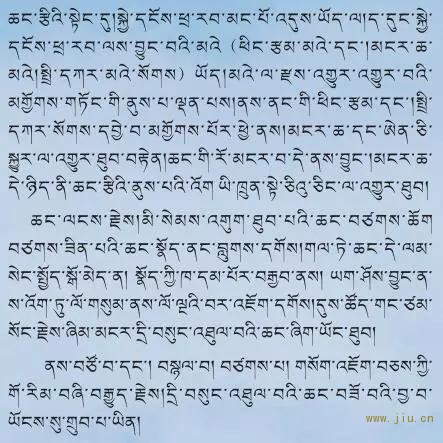 ཆང་རྩིའི་སྟེང་དུ།སྐྱེ་དངོས་ཕྲ་རབ་མང་པོ་འདུས་ཡོད་ལ།ད་དུང་སྐྱེ་
དངོས་ཕྲ་རབ་ལས་བྱུང་བའི་མའེ་(ཕིང་རྩམ་མའེ་དང་།མངར་ཆ་
མའེ།སྤྲི་དཀར་མའེ་སོགས)ཡོད།མའེ་ལ་རྫས་འགྱུར་འགྱུར་བའི་
མགྱོགས་གཏོང་གི་ནུས་པ་ལྡན་པས།ནས་ནང་གི་ཕིང་རྩམ་དང་།སྤྲི་
དཀར་སོགས་དབྱེ་བ་མགྱོགས་པོར་ཕྱེ་ནས།མངར་ཆ་དང་ཨེན་ཅི་
སྐྱུར་ལ་འགྱུར་ཐུབ་བརྟེན།ཆང་གི་རོ་མངར་བ་དེ་ནས་བྱུང་།མངར་ཆ་
དེ་ཉིད་ནི་ཆང་རྩིའི་ནུས་པའི་འོག་ཡི་ཁྲུན་སྟེ་ཅིའུ་ཅིང་ལ་འགྱུར་ཐུབ།
ཆང་ལངས་རྗེས།མི་སེམས་འགུག་ཐུབ་པའི་ཆང་བཙགས་ཆོག
བཙགས་ཟིན་པའི་ཆང་སྣོད་ནང་བླུགས་དགོས།གལ་ཏེ་ཆང་དེ་ལམ་
སེང་སྤྱོད་སྒོ་མེད་ན། སྣོད་ཀྱི་ཁ་དམ་པོར་བརྒྱབ་ནས། ཡག་ཤོས་བྱུང་ན་
ས་འོག་ཏུ་ལོ་གསུམ་ནས་ལོ་ལྔའི་བར་འཇོག་དགོས།དུས་ཚོད་གང་ཙམ་
སོང་རྗེས་ཞིམ་མངར་དྲི་བསུང་འཐུལ་བའི་ཆང་ཞིག་ཡོང་ཐུབ།
ནས་བཙོ་བ་དང་། བསྙལ་བ། བཙགས་པ། གསོག་འཇོག་བཅས་ཀྱི་
གོ་རིམ་བཞི་བརྒྱུད་རྗེས།དྲི་བསུང་འཐུལ་བའི་ཆང་བཟོ་བའི་བྱ་བ་
ཡོངས་སུ་གྲུབ་པ་ཡིན།
www.jiu.cn